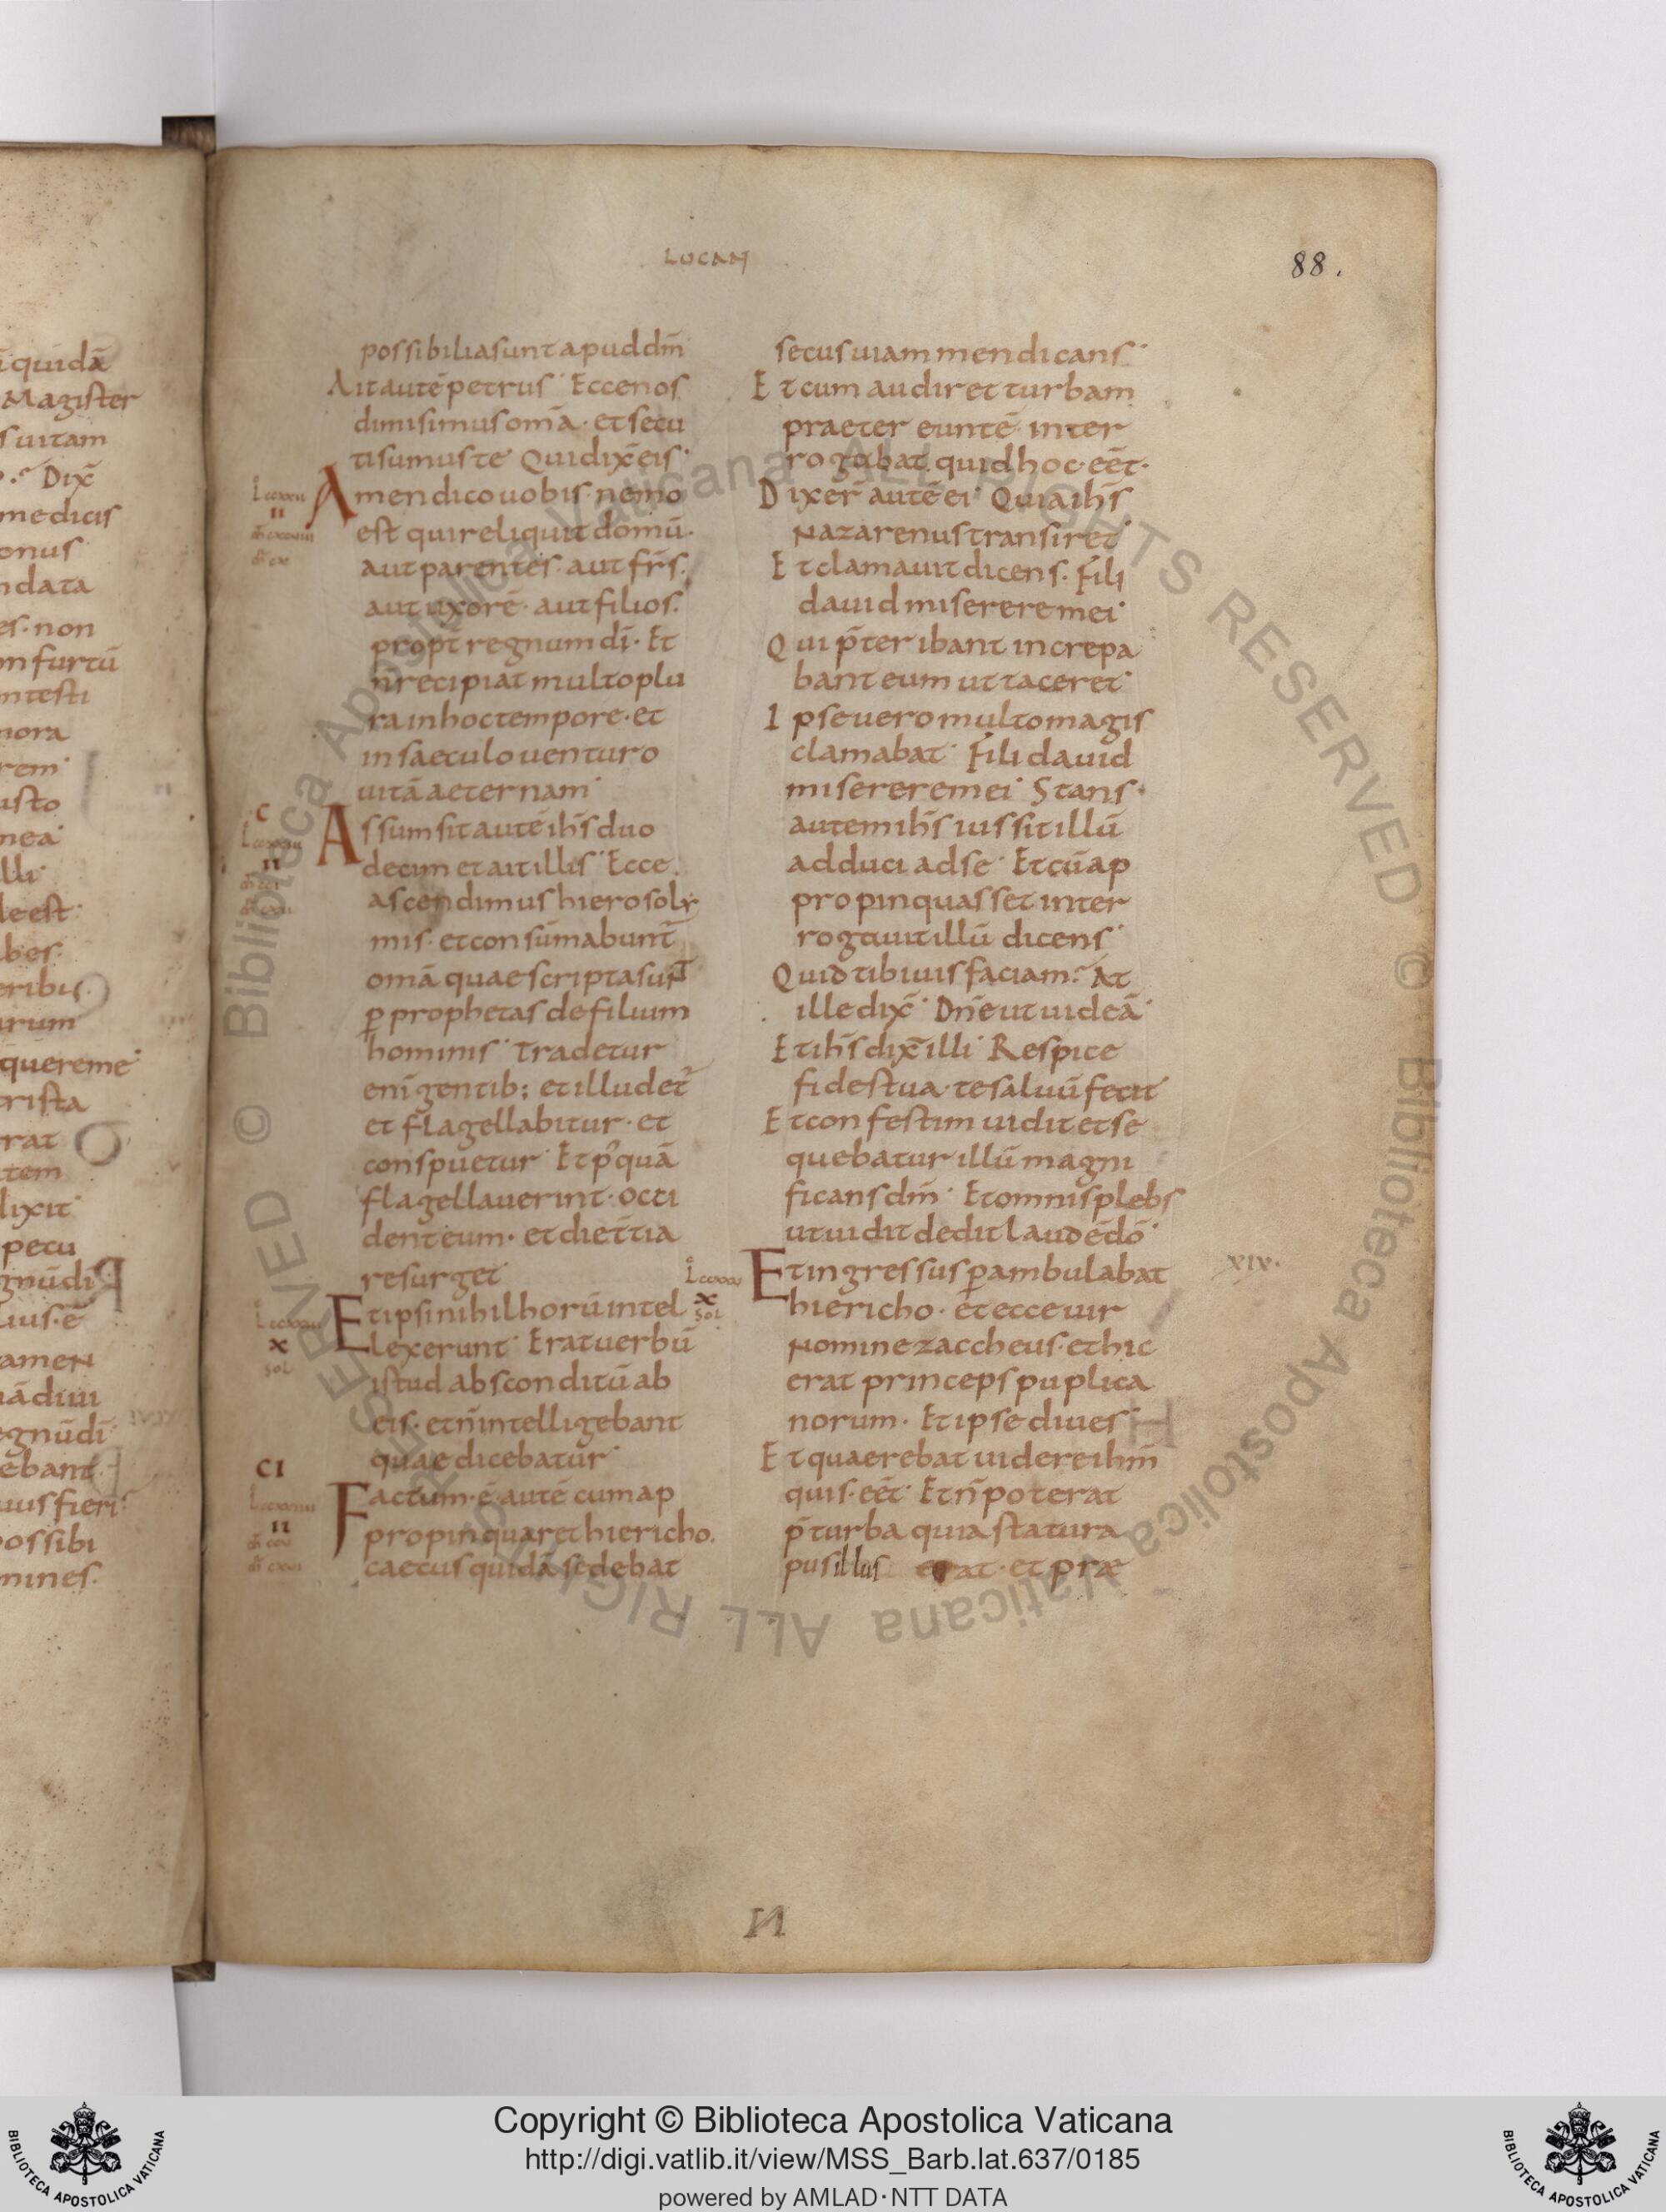 LUCAN
88.
possibilia sunt apud dm̄
Ait autē petrus Ecce nos
dimisimus om̄a · et secu
ti sumus te Qui dix̄ eis
Amen dico uobis · nemo
est qui reliquit domū ·
aut parentes · aut fr̄s ·
aut uxorē · aut filios ·
propt regnum dī · Et
n̄ recipiat multo plu
ra in hoc tempore · et
in saeculo uenturo
uitā aeternam
C
Assumsit autē ih̄s duo
decim et ait illis Ecce
ascendimus hierosoly
mis · et consūmabunt̄
om̄a quae scripta sunt
ꝑ prophetas de filium
hominis Tradetur
enī gentib; et illudet̄
et flagellabitur · et
conspuetur Et p̄quā
flagellauerint · occi
dent eum · et die t̄tia
resurget
Et ipsi nihil horū intel
lexerunt Erat uerbū
istud absconditū ab
eis · et n̄ intelligebant
quae dicebatur
CI
Factum · ē · autē cum ap
propinquaret hiericho.
caecus quidā sedebat
secus uiam mendicans
Et cum audiret turbam
praeter euntē inter
rogabat quid hoc eēt ·
Dixer̄ autē ei Quia ih̄s
Nazarenus transiret
Et clamauit dicens · Fili
dauid miserere mei
Qui p̄teribant increpa
bant eum ut taceret
Ipse uero multo magis
clamabat Fili dauid
miserere mei Stans ·
autem ih̄s iussit illū
adduci ad se Et cū ap
propinquasset inter
rogauit illū dicens
Quid tibi uis faciam At
ille dix̄ Dn̄e ut uideā
Et ih̄s dix̄ illi Respice
fides tua · te saluū fecit
Et confestim uidit et se
quebatur illū magni
ficans dm̄ Et omnis plebs
ut uidit dedit laudē dō
Et ingressus ꝑambulabat
XIX.
hiericho · et ecce uir
Nomine zaccheus · et hic
erat princeps puplica
norum · Et ipse diues
Et quaerebat uidere ih̄m
quis · eēt Et n̄ poterat
p̄ turba quia statura
pusillus erat · et prae
Copyright © Biblioteca Apostolica Vaticana
http://digi.vatlib.it/view/MSS_Barb.lat.637/0185
powered by AMLAD·NTT DATA